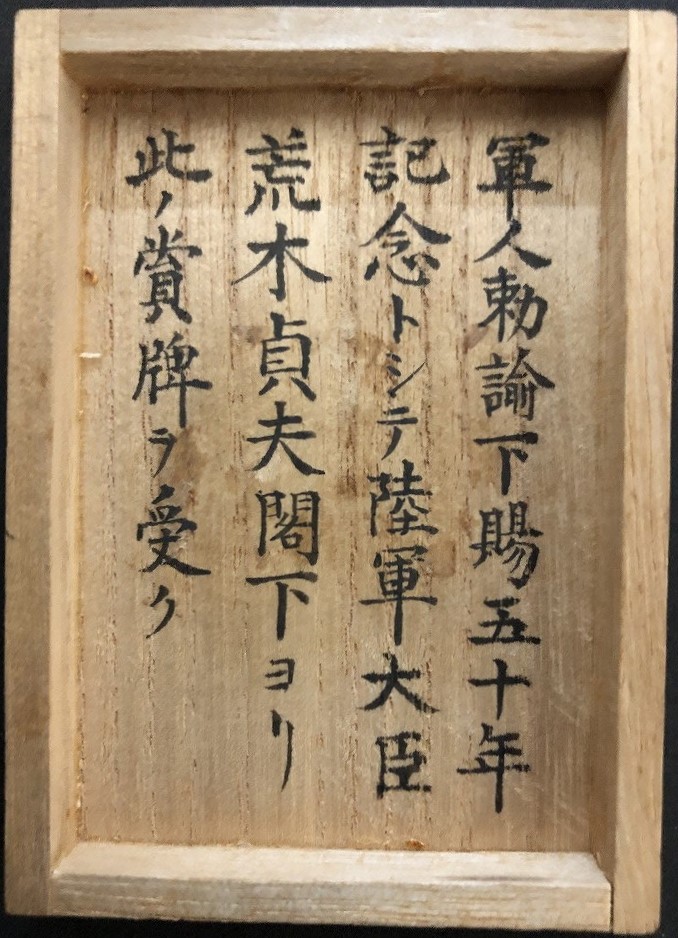 軍人勅諭下賜五十年
記念トシテ陸軍大臣
荒木貞夫閣下ヨリ
此ノ賞牌ヲ受ク